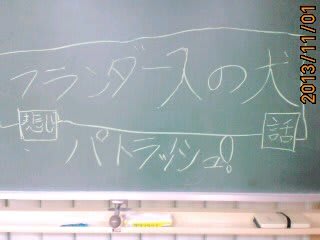 2013/11/01
フランダースの犬
悲し 話
パトラッシュ!